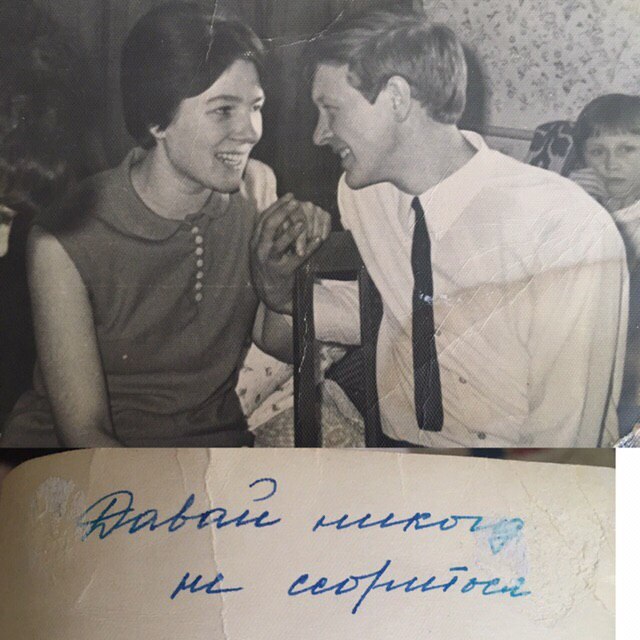 Давай никогда
не ссориться